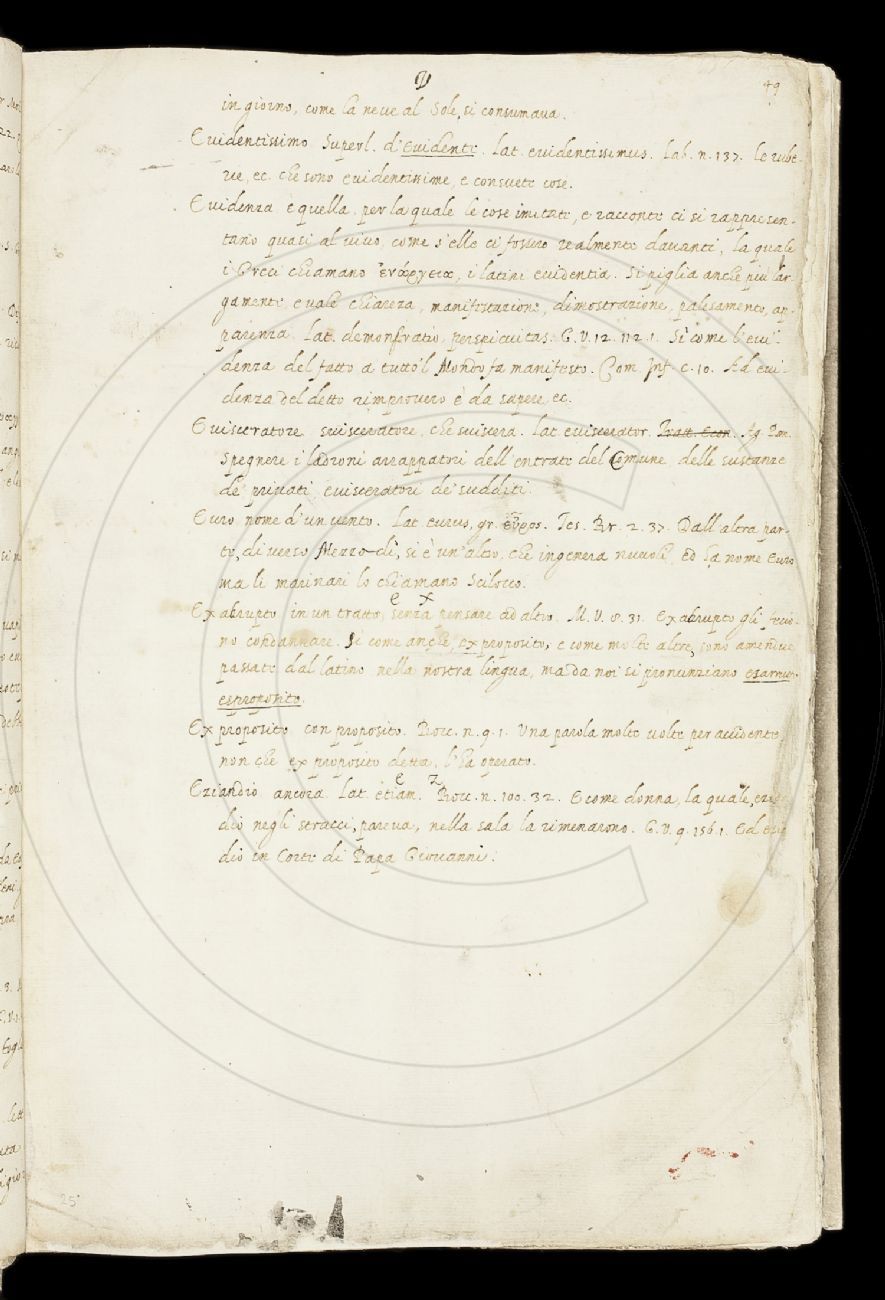 V
49
in giorno, come la neue al Sole, si consumaua.
Euidentissimo Superl. d'Euidente. Lat. euidentissimus. Lab. n. 137. le rube-
rie, ec. che sono euidentissime, e consuete cose.
Euidenza e quella, per la quale le cose imitate, e racconte ci si rappresen-
tano quasi al uiuo, come s'elle ci fossero realmente dauanti, la quale
i Greci chiamano ἐνάργεια, i latini euidentia. Si piglia anche piu lar-
gamente e uale chiareza, manifestazione, dimostrazione, palesamento, ap-
parenza. Lat. demonstratio, perspicuitas. G. V. 12. 112. 1. Si come l'eui-
denza del fatto a tutto'l Mondo fa manifesto. Com. Inf. c. 10. Ad eui-
denza del detto rimprouero è da sapere, ec.
Euisceratore suisceratore, che suiscera. Lat. euiscerator. Tratt. Econ. Ag. Pan.
Spegnere i ladroni arrappatori dell'entrate del Comune delle sustanze
de' priuati, euisceratori de' sudditi.
Euro nome d'un uento. Lat. eurus, gr. εὖρος. Tes. Br. 2. 37. Dall'altra par-
te, di uerso Mezzo dì, si è un'altro, che ingenera nuuoli, ed ha nome Euro
ma li marinari lo chiamano Scilocco.
e x
Ex abrupto in un tratto, senza pensare ad altro. M. V. 8. 31. Ex abrupto gli fecio-
no condannare. Si come anche, ex proposito, e come molte altre, sono amendue
passate dal latino nella nostra lingua, ma da noi si pronunziano
esproposito.
Ex proposito con proposito. Bocc. n. 9. 1. Una parola molte uolte per accidente,
non che ex proposito detta, l'ha operato.
e z
Eziandio ancora. Lat. etiam. Bocc. n. 100. 32. E come donna, la quale, ezian
dio negli stracci, pareua, nella sala la rimenarono. G. V. 9. 156. 1. Ed ezian
dio in Corte di Papa Giouanni.
25